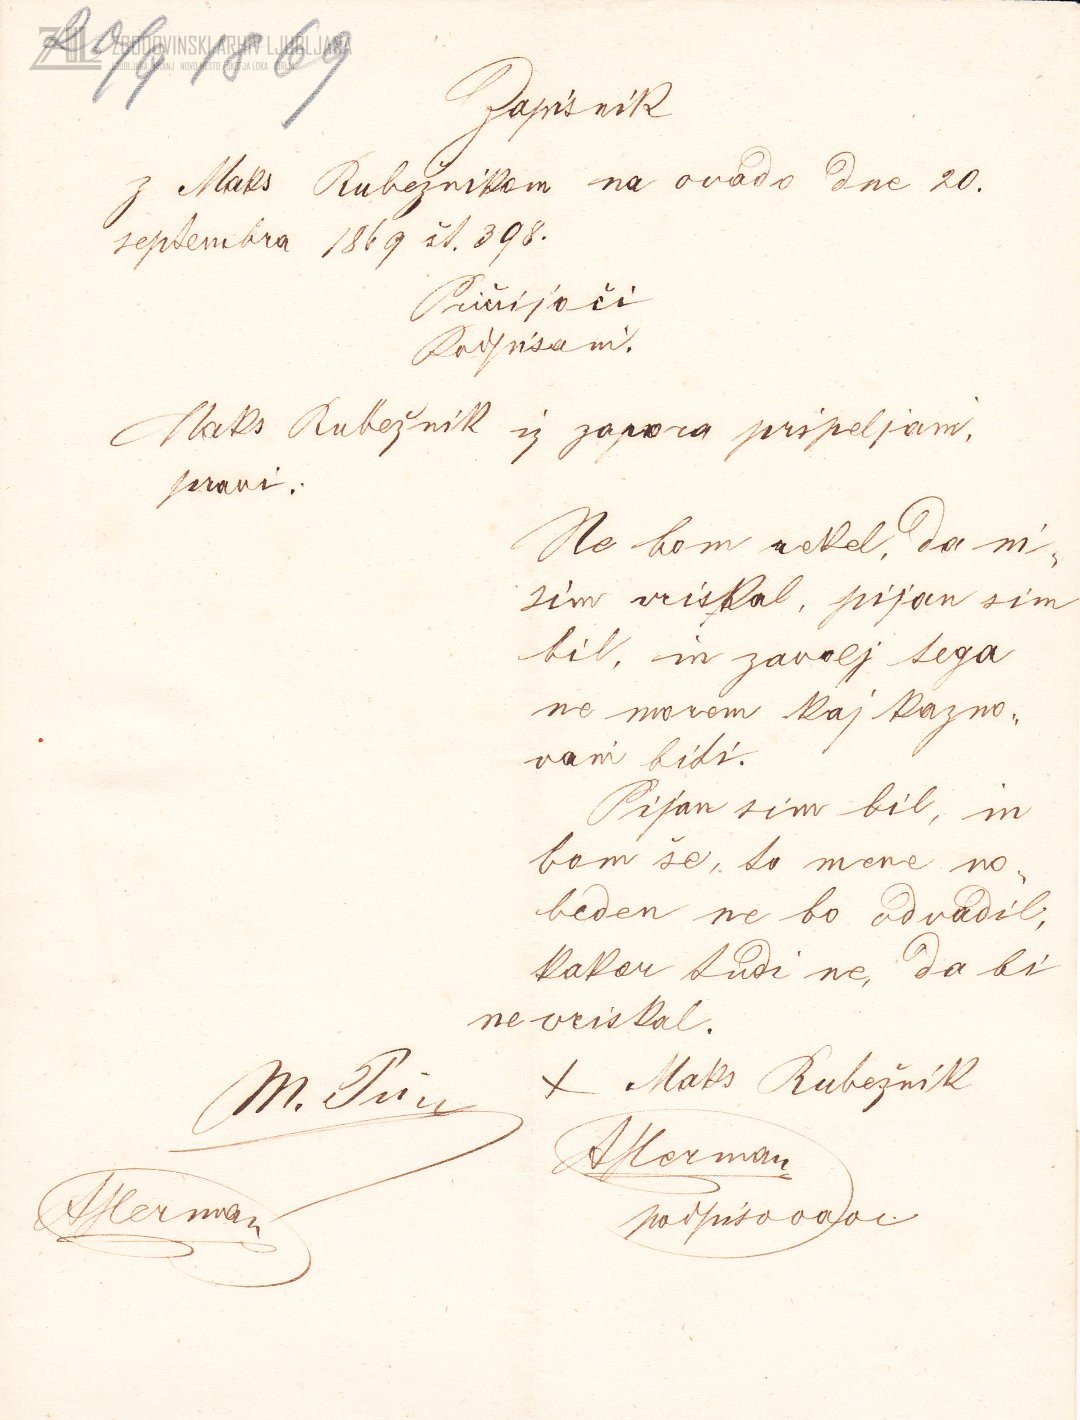 20/9 1869
ZGODOVINSKI ARHIV LJUBLJANA
Zapisnik
z Maks Rubežnikam na ovado dne 20.
septembra 1869 št. 398.
Pričijoči
Podpisani.
Maks Rubežnik iz zapora pripeljani,
pravi.
Ne bom rekel, da ni„
sim vriskal, pijan sim
bil, in zavolj tega
ne morem kaj kazno„
vani biti.
Pijan sim bil, in
bom še, to mene no„
beden ne bo odvadil,
kakor tudi ne, da bi
ne vriskal.
+ Maks Rubežnik
M.
AHerman
podpisovavc
AHerman